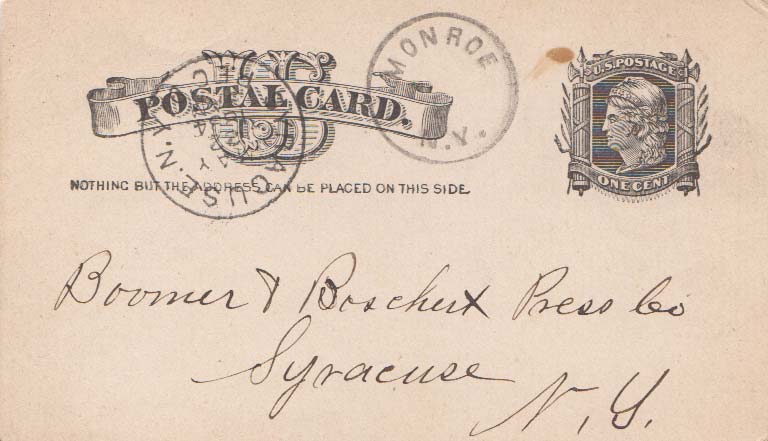 U.S. POSTAGE
ONE CENT
POSTAL CARD.
MONROE
N.Y.
SYRACUSE. N.Y.
MAY
NOTHING BUT THE ADDRESS CAN BE PLACED ON THIS SIDE.
Boomer & Boschert Press Co
Syracuse
N. Y.